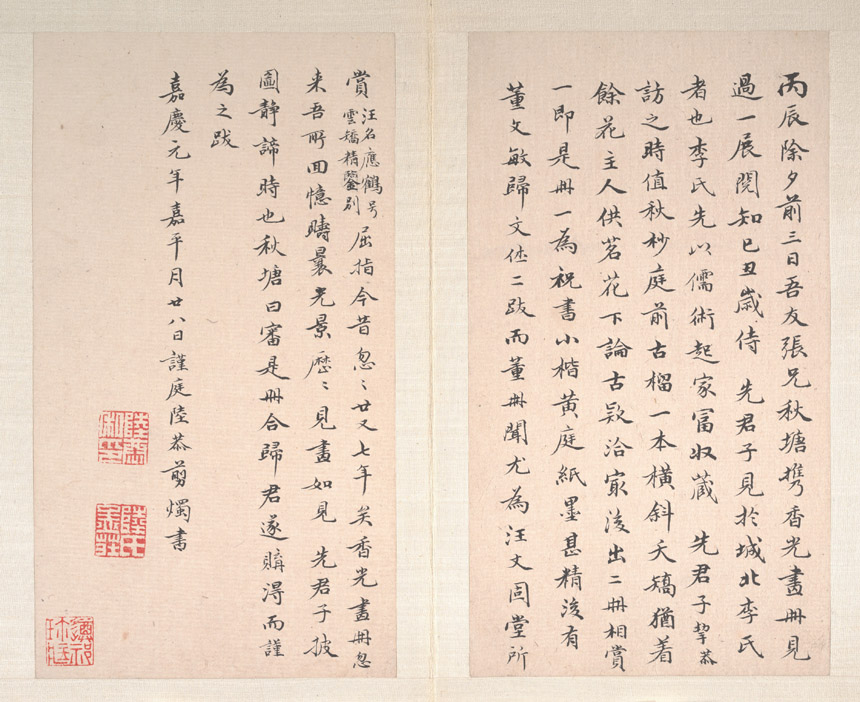 丙辰除夕前三日吾友張兄秋塘携香光畫冊見
過一展閱知已丑歲侍 先君子見扵城北李氏
者也李氏先以儒術起家冨收藏 先君子挈恭
訪之時值秋杪庭前古榴一本橫斜夭矯猶着
餘花主人供茗花下論古欵洽㝡後出二冊相賞
一即是冊一為祝書小楷黄庭紙墨甚精後有
董文敏歸文休二跋而董冊聞尤為汪文固堂所
賞
汪名應鶴号
雲矯精鑒別
屈指今昔忽〻廿又七年矣香光畫冊忽
来吾所回憶疇曩光景歷〻見畫如見 先君子披
圖静諦時也秋塘曰審是冊合歸君遂購得而謹
為之跋
嘉慶元年嘉平月廿八日謹庭陸恭剪燭書
陸恭
陸氏